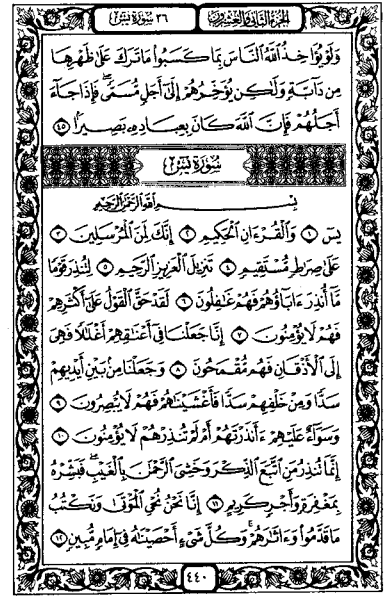 الجزء الثاني والعشرون ٣٦ سورة يس
وَلَوْ يُؤَاخِذُ ٱللَّهُ ٱلنَّاسَ بِمَا كَسَبُوا۟ مَا تَرَكَ عَلَىٰ ظَهْرِهَا
مِن دَآبَّةٍ وَلَٰكِن يُؤَخِّرُهُمْ إِلَىٰٓ أَجَلٍ مُّسَمًّى ۖ فَإِذَا جَآءَ
أَجَلُهُمْ فَإِنَّ ٱللَّهَ كَانَ بِعِبَادِهِۦ بَصِيرًۢا ٤٥
سُورَةُ يسٓ
بِسْمِ ٱللَّهِ ٱلرَّحْمَٰنِ ٱلرَّحِيمِ
يسٓ ١ وَٱلْقُرْءَانِ ٱلْحَكِيمِ ٢ إِنَّكَ لَمِنَ ٱلْمُرْسَلِينَ ٣
عَلَىٰ صِرَٰطٍ مُّسْتَقِيمٍ ٤ تَنزِيلَ ٱلْعَزِيزِ ٱلرَّحِيمِ ٥ لِتُنذِرَ قَوْمًا
مَّآ أُنذِرَ ءَابَآؤُهُمْ فَهُمْ غَٰفِلُونَ ٦ لَقَدْ حَقَّ ٱلْقَوْلُ عَلَىٰٓ أَكْثَرِهِمْ
فَهُمْ لَا يُؤْمِنُونَ ٧ إِنَّا جَعَلْنَا فِىٓ أَعْنَٰقِهِمْ أَغْلَٰلًا فَهِىَ
إِلَى ٱلْأَذْقَانِ فَهُم مُّقْمَحُونَ ٨ وَجَعَلْنَا مِنۢ بَيْنِ أَيْدِيهِمْ
سَدًّا وَمِنْ خَلْفِهِمْ سَدًّا فَأَغْشَيْنَٰهُمْ فَهُمْ لَا يُبْصِرُونَ ٩
وَسَوَآءٌ عَلَيْهِمْ ءَأَنذَرْتَهُمْ أَمْ لَمْ تُنذِرْهُمْ لَا يُؤْمِنُونَ ١٠
إِنَّمَا تُنذِرُ مَنِ ٱتَّبَعَ ٱلذِّكْرَ وَخَشِىَ ٱلرَّحْمَٰنَ بِٱلْغَيْبِ ۖ فَبَشِّرْهُ
بِمَغْفِرَةٍ وَأَجْرٍ كَرِيمٍ ١١ إِنَّا نَحْنُ نُحْىِ ٱلْمَوْتَىٰ وَنَكْتُبُ
مَا قَدَّمُوا۟ وَءَاثَٰرَهُمْ ۚ وَكُلَّ شَىْءٍ أَحْصَيْنَٰهُ فِىٓ إِمَامٍ مُّبِينٍ ١٢
٤٤٠